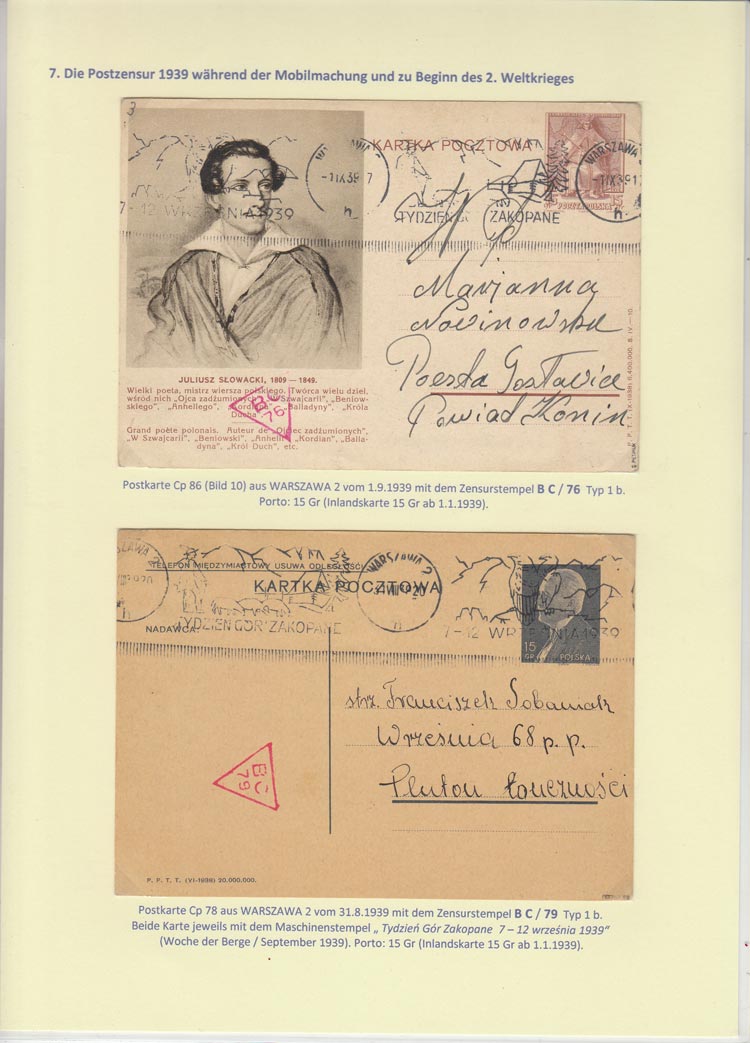 7. Die Postzensur 1939 während der Mobilmachung und zu Beginn des 2. Weltkrieges
3
KARTKA POCZTOWA
WARSZAWA
-1 IX 39 17
h
7-12 WRZEŚNIA 1939
TYDZIEŃ ZAKOPANE
POCZTA POLSKA
15
W P
Marjanna
Nowinowska
Poczta Gosławice
Powiat Konin
JULIUSZ SŁOWACKI, 1809 — 1849.
Wielki poeta, mistrz wiersza polskiego. Twórca wielu dzieł,
wśród nich „Ojca zadżumionych", „W Szwajcarii", „Beniow-
skiego", „Anhellego", „Kordiana", „Balladyny", „Króla
Ducha"
Grand poète polonais. Auteur de „Ojciec zadżumionych",
„W Szwajcarii", „Beniowski", „Anhelli", „Kordian", „Balla-
dyna", „Król Duch", etc.
BC
76
P. P. T. T. (X-1938) 6.400.000. B. IV — 10.
Postkarte Cp 86 (Bild 10) aus WARSZAWA 2 vom 1.9.1939 mit dem Zensurstempel B C / 76 Typ 1 b.
Porto: 15 Gr (Inlandskarte 15 Gr ab 1.1.1939).
TELEFON MIĘDZYMIASTOWY USUWA ODLEGŁOŚCI
KARTKA POCZTOWA
WARSZAWA 2
h
NADAWCA:
TYDZIEŃ GÓR ZAKOPANE
7-12 WRZEŚNIA 1939
15
GR
POLSKA
strz. Franciszek Sobaniak
Września 68 p. p.
Pluton Łączności
BC
79
P. P. T. T. (VI-1939) 20.000.000.
Postkarte Cp 78 aus WARSZAWA 2 vom 31.8.1939 mit dem Zensurstempel B C / 79 Typ 1 b.
Beide Karte jeweils mit dem Maschinenstempel „ Tydzień Gór Zakopane 7 – 12 września 1939"
(Woche der Berge / September 1939). Porto: 15 Gr (Inlandskarte 15 Gr ab 1.1.1939).